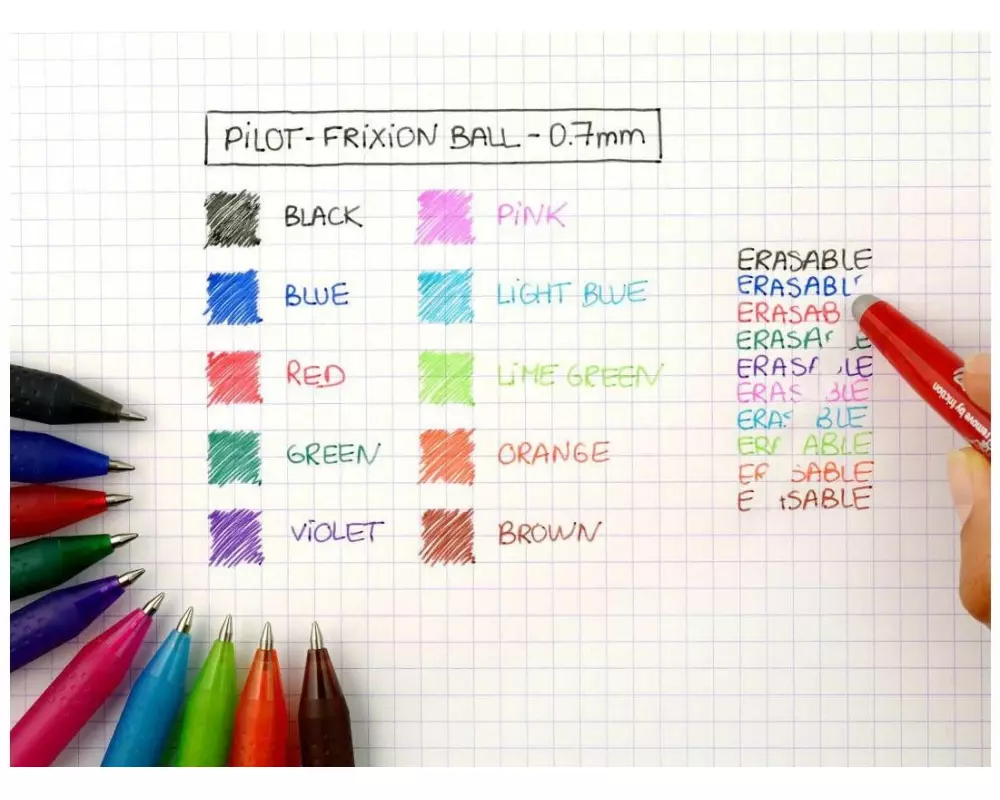 PiLOT-FRiXiON BALL - 0.7mm
BLACK
BLUE
RED
GREEN
ViOLET
PiNK
LiGHT BLUE
LiME GREEN
ORANGE
BROWN
ERASABLE
ERASABL
ERASAB
ERASA E
ERAS LE
ERAS BLE
ERA BLE
ER ABLE
ER SABLE
E SABLE
remove by friction